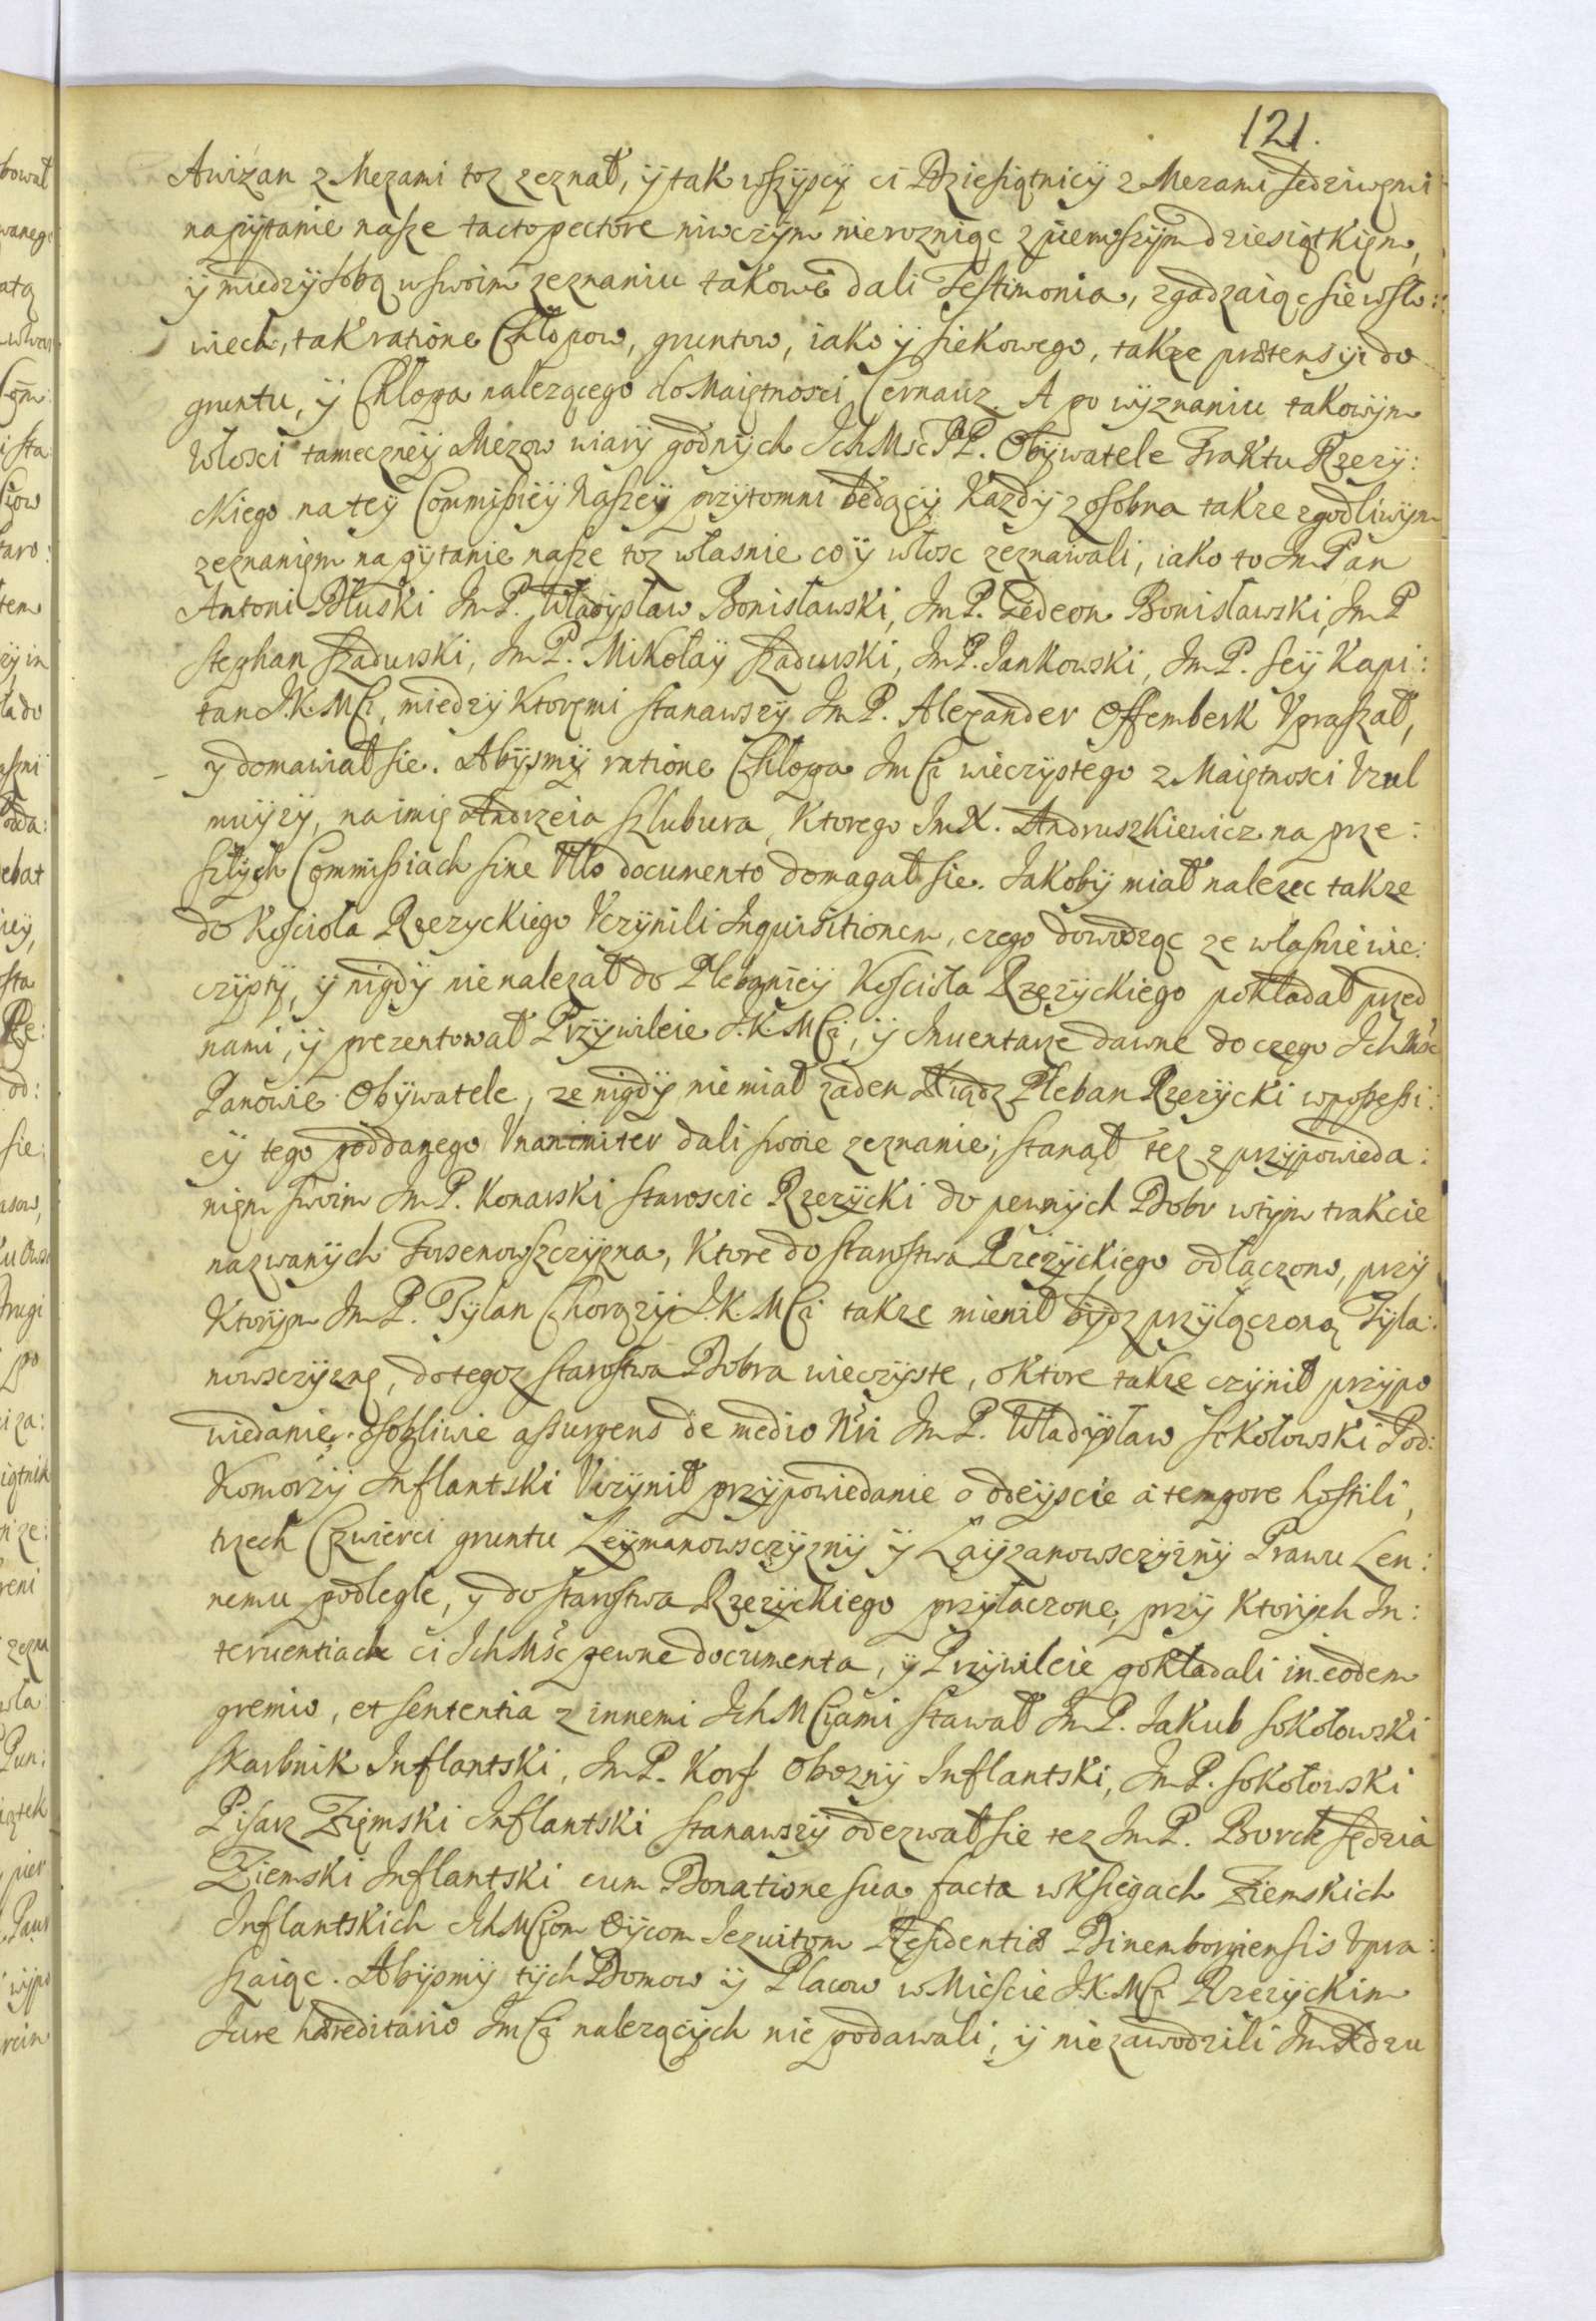 121.
Awizan z Mezami toz zeznał, ÿ tak wszÿscÿ ci Dziesiątnicÿ z Mezami sędziwęmi
na pÿtanie nasze tacto pectore niwczÿm nierozniąc z pierwszÿm dziesiątkięm,
ÿ miedzÿ sobą w swoim zeznaniu takowe dali Testimonia, zgadzaiąc sie w sło:
wiech, tak ratione Chłopow, gruntow, iako ÿ siekowego, takze prætensÿi do
gruntu, ÿ Chłopa nalezącego do Maiętnosci Cernauz. A po wÿznaniu takowÿm
Włosci tamecznéÿ Mezow wiarÿ godnÿch Ich Msc PP. Obÿwatele Traktu Rzezÿ:
ckiego na teÿ Commissiéÿ Naszeÿ przÿtomni bedącÿ Kazdÿ z osobna takze zgodliwÿm
zeznanięm na pÿtanie nasze toz własnie co ÿ włosc zeznawali, iako to Jm Pan
Antoni Błuski Jm P. Władÿsław Bonisławski, Jm P. Gedeon Bonisławski, Jm P
Stephan Szadurski, Jm P. Mikołaÿ Szadurski, Jm P. Jankowski, Jm P. Seÿ Kapi:
tan J.K.MCi, miedzÿ Ktoręmi stanawszÿ Jm P. Alexander Offemberk Vpraszał,
y domawiał sie. Abÿsmÿ ratione Chłopa JmCi wieczÿstego z Maiętnosci Vzul
muÿzÿ, na imię Andrzeia Szlubura, Ktorego Jm X. Andruszkiewicz na prze:
szłÿch Commissiach sine Vllo documento domagał sie. Jakobÿ miał nalezec takze
do Koscioła Rzezyckiego Vczÿnili Inquisitionem, czego dowodząc ze własnie wie:
czÿstÿ, ÿ nigdÿ nie nalezał do Plebanieÿ Koscioła Rzezÿckiego pokładał przed
nami, ÿ prezentował Przÿwileie J.K.MCi, ÿ Inuentarze dawne do czego Ich Msc
Panowie Obÿwatele, ze nigdÿ nie miał zaden Xiądz Pleban Rzezÿcki w possessi:
eÿ tego poddanego Vnanimiter dali swoie zeznanie; stanął tez z przÿpowieda:
nięm swoim Jm P. Konarski Staroscic Rzezÿcki do pewnÿch Dobr w tÿm trakcie
nazwanÿch Fursenowszczÿzna, Ktore do Starostwa Rzezÿckiego odłączono, przÿ
Ktorÿm Jm P. Tÿlan Chorązÿ J.K.MCi takze mienił bÿdz przÿłączoną Tÿla:
nowsczÿznę, do tegoz Starostwa Dobra wieczÿste, o ktore takze czÿnił przÿpo
wiedanie. osobliwie assurgens de medio Nri Jm P. Władÿsław Sokołowski Pod:
Komorzÿ Inflantski Vczÿnił przÿpowiedanie o odeÿscie a tempore hostili,
trzech Czwierci gruntu Leÿmanowsczÿznÿ ÿ Łaÿzanowsczÿznÿ Prawu Len:
nemu podległe, y do Starostwa Rzezÿckiego przÿłaczone, przÿ Ktorÿch In:
teruentiach ci Ich Msc pewne documenta, ÿ Przÿwileie pokładali in eodem
gremio, et sententia z innemi Ich MCiami stawał Jm P. Jakub Sokołowski
Skarbnik Inflantski, Jm P. Korf Oboznÿ Inflantski, Jm P. Sokołowski
Pisarz Ziemski Inflantski stanawszÿ odezwał sie tez Jm P. Borch Sędzia
Ziemski Inflantski cum Donatione sua facta w Ksiegach Ziemskich
Inflantskich Ich MCiom Oÿcom Jezuitom Residentiæ Dinemborgiensis Vpra:
szaiąc. Abÿsmÿ tÿch Domow ÿ Placow w Miescie J.K.MCi Rzezÿckim
Jure hæreditario JmCi nalezącÿch nie podawali, ÿ nie zawodzili Jm Xdzu